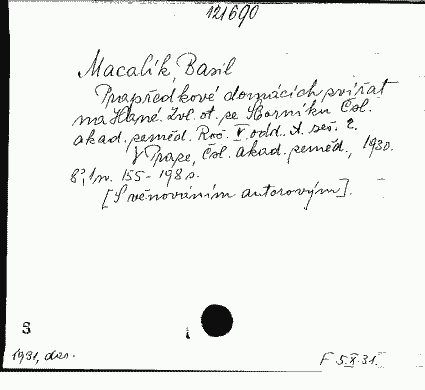 121690
Macalík, Basil
Prapředkové domácích zvířat
na Hané. Zvl. ot. ze Sborníku Čsl.
akad. zeměd. Roč. V. odd. A. seš. 2.
V Praze, Čsl. akad. zeměd., 1930.
8°, 155-198 s.
[S věnováním autorovým].
S
1931, dar.
F 5.X.31.